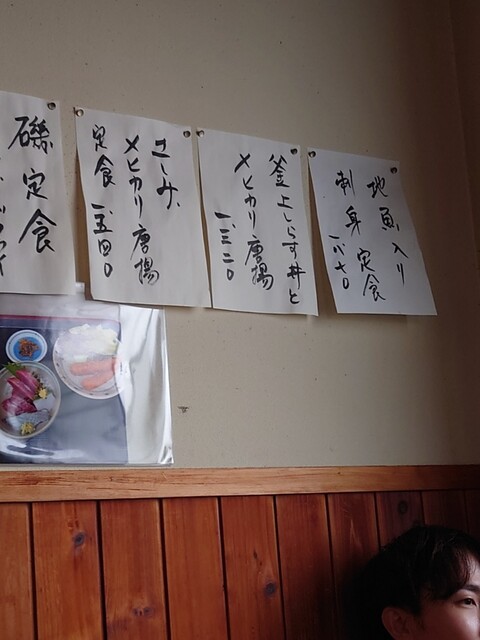 地魚入り
刺身定食
一、八七〇
釜上しらす丼と
メヒカリ唐揚
一、三二〇
さしみ、
メヒカリ唐揚
定食 一、五四〇
磯定食